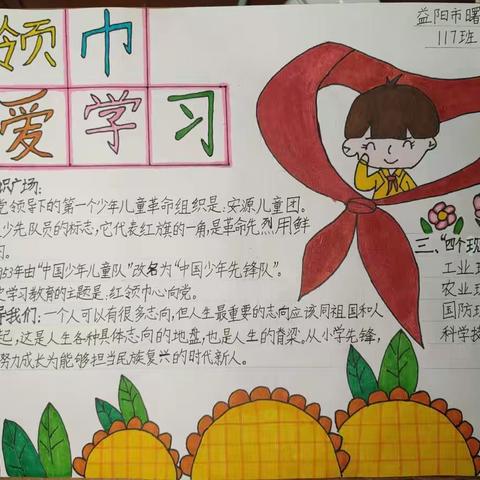 领巾
爱学习
益阳市曙
117班
识广场:
党领导下的第一个少年儿童革命组织是:安源儿童团。
少先队员的标志,它代表红旗的一角,是革命先烈用鲜
的。
953年由“中国少年儿童队”改名为“中国少年先锋队”。
史学习教育的主题是:红领巾心向党。
导我们:一个人可以有很多志向,但人生最重要的志向应该同祖国和人
起,这是人生各种具体志向的地盘,也是人生的脊梁。从小学先锋,
努力成长为能够担当民族复兴的时代新人。
三、“四个现
工业现
农业现
国防现
科学技